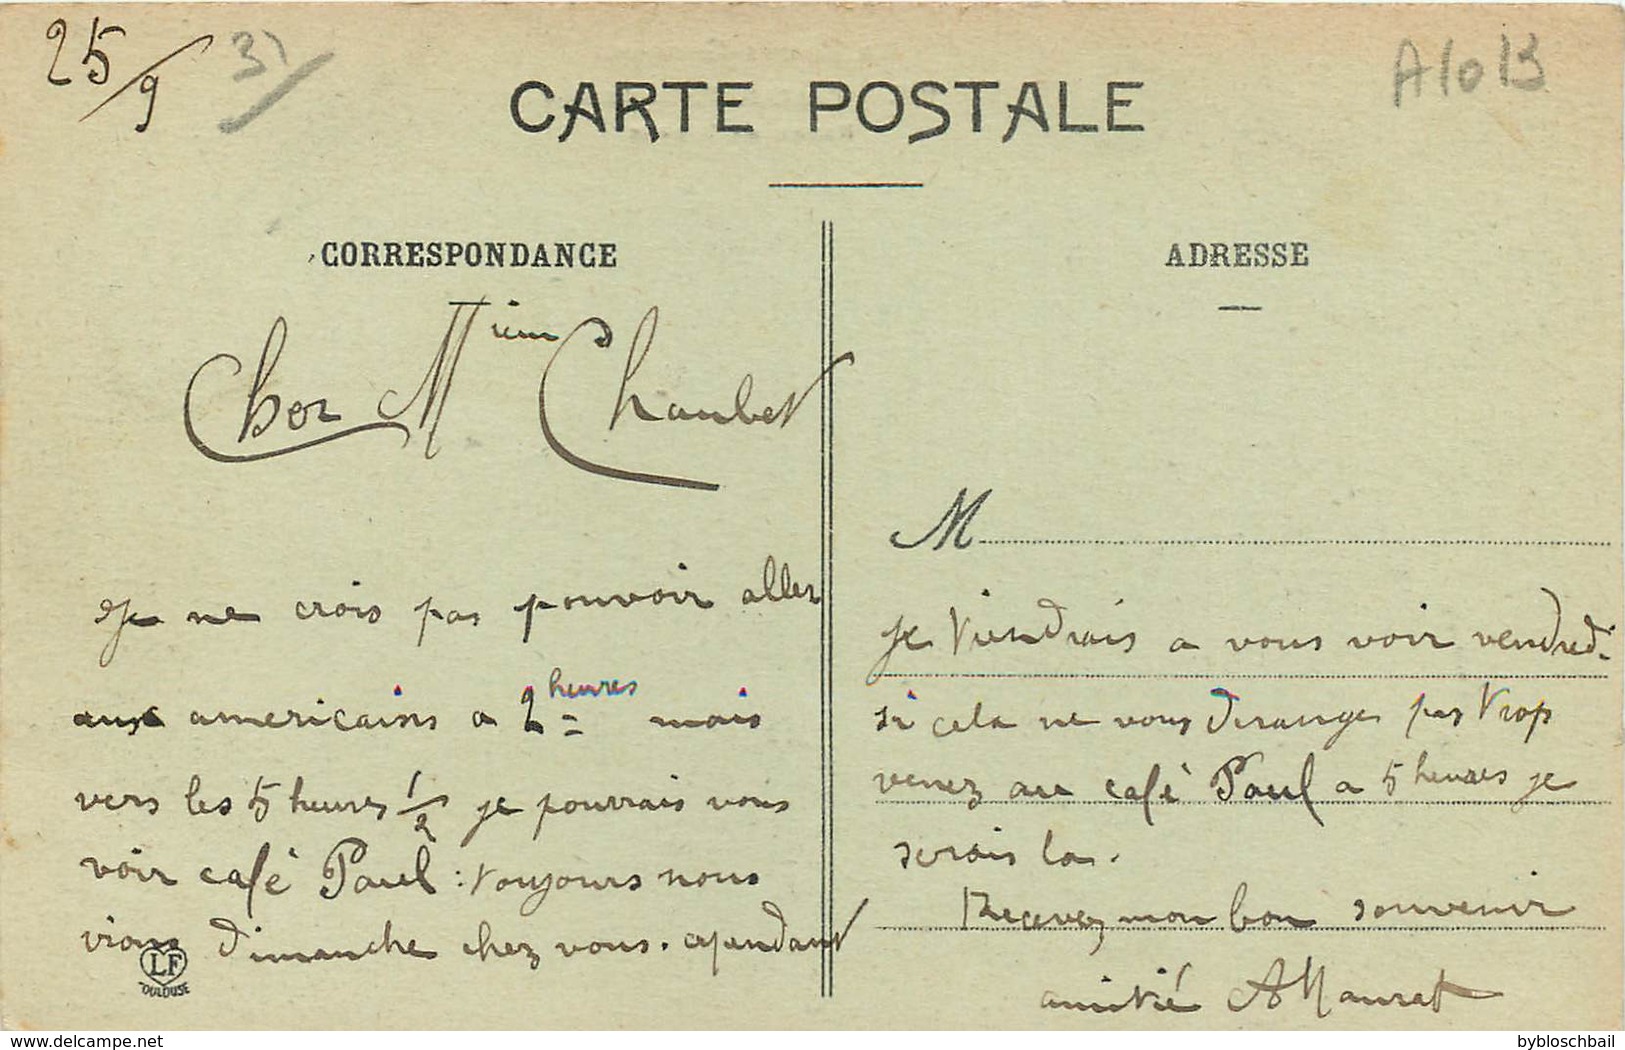 25/9
A10B
CARTE POSTALE
CORRESPONDANCE
ADRESSE
Cher Mieur Chaubet
Je ne crois pas pouvoir aller
aux americains a 2 heures mais
vers les 5 heures 1/2 je pourrais vous
voir café Paul : toujours nous
vions dimanche chez vous. cependant
LF
TOULOUSE
M
je viendrais a vous voir vendredi
si cela ne vous deranges pas trop
venez au café Paul a 5 heures je
serais la.
Recevez mon bon souvenir
amitié
delcampe.net
bybloschbail